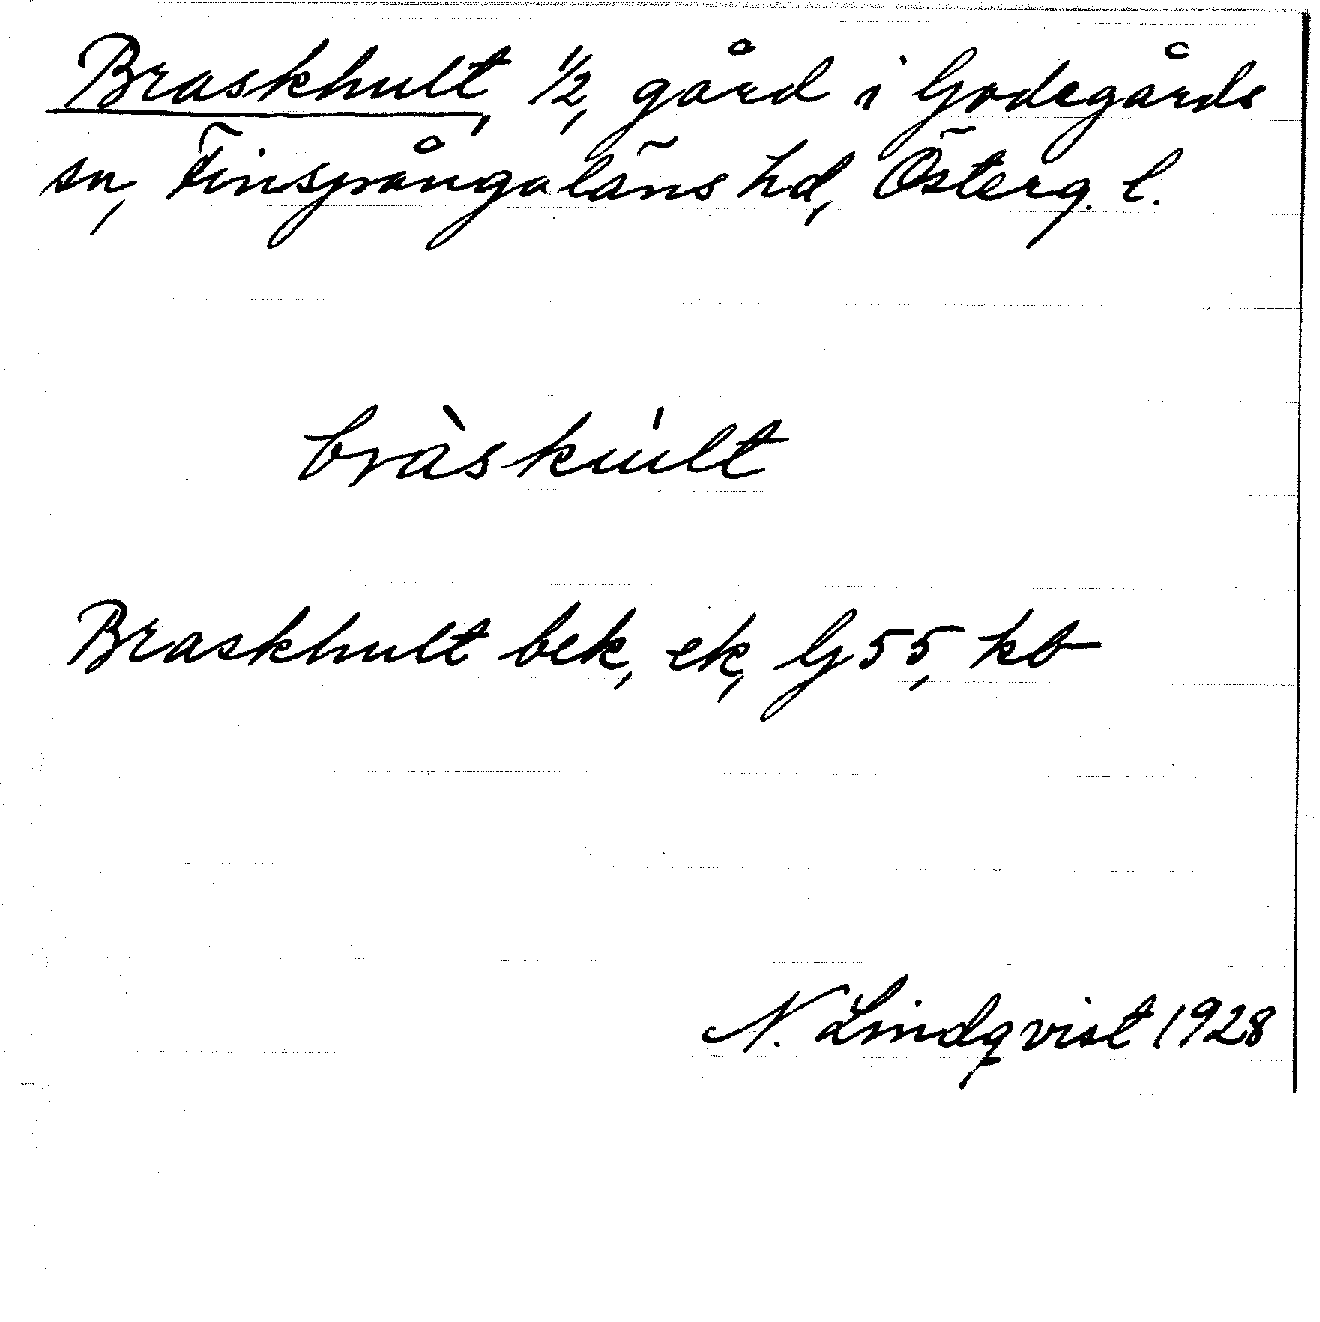 Braskhult, 1/2, gård i Godegårds
sn, Finspångaläns hd, Österg. l.
bràskúlt
Braskhult bek, ek, G55, kb
N. Lindqvist 1928